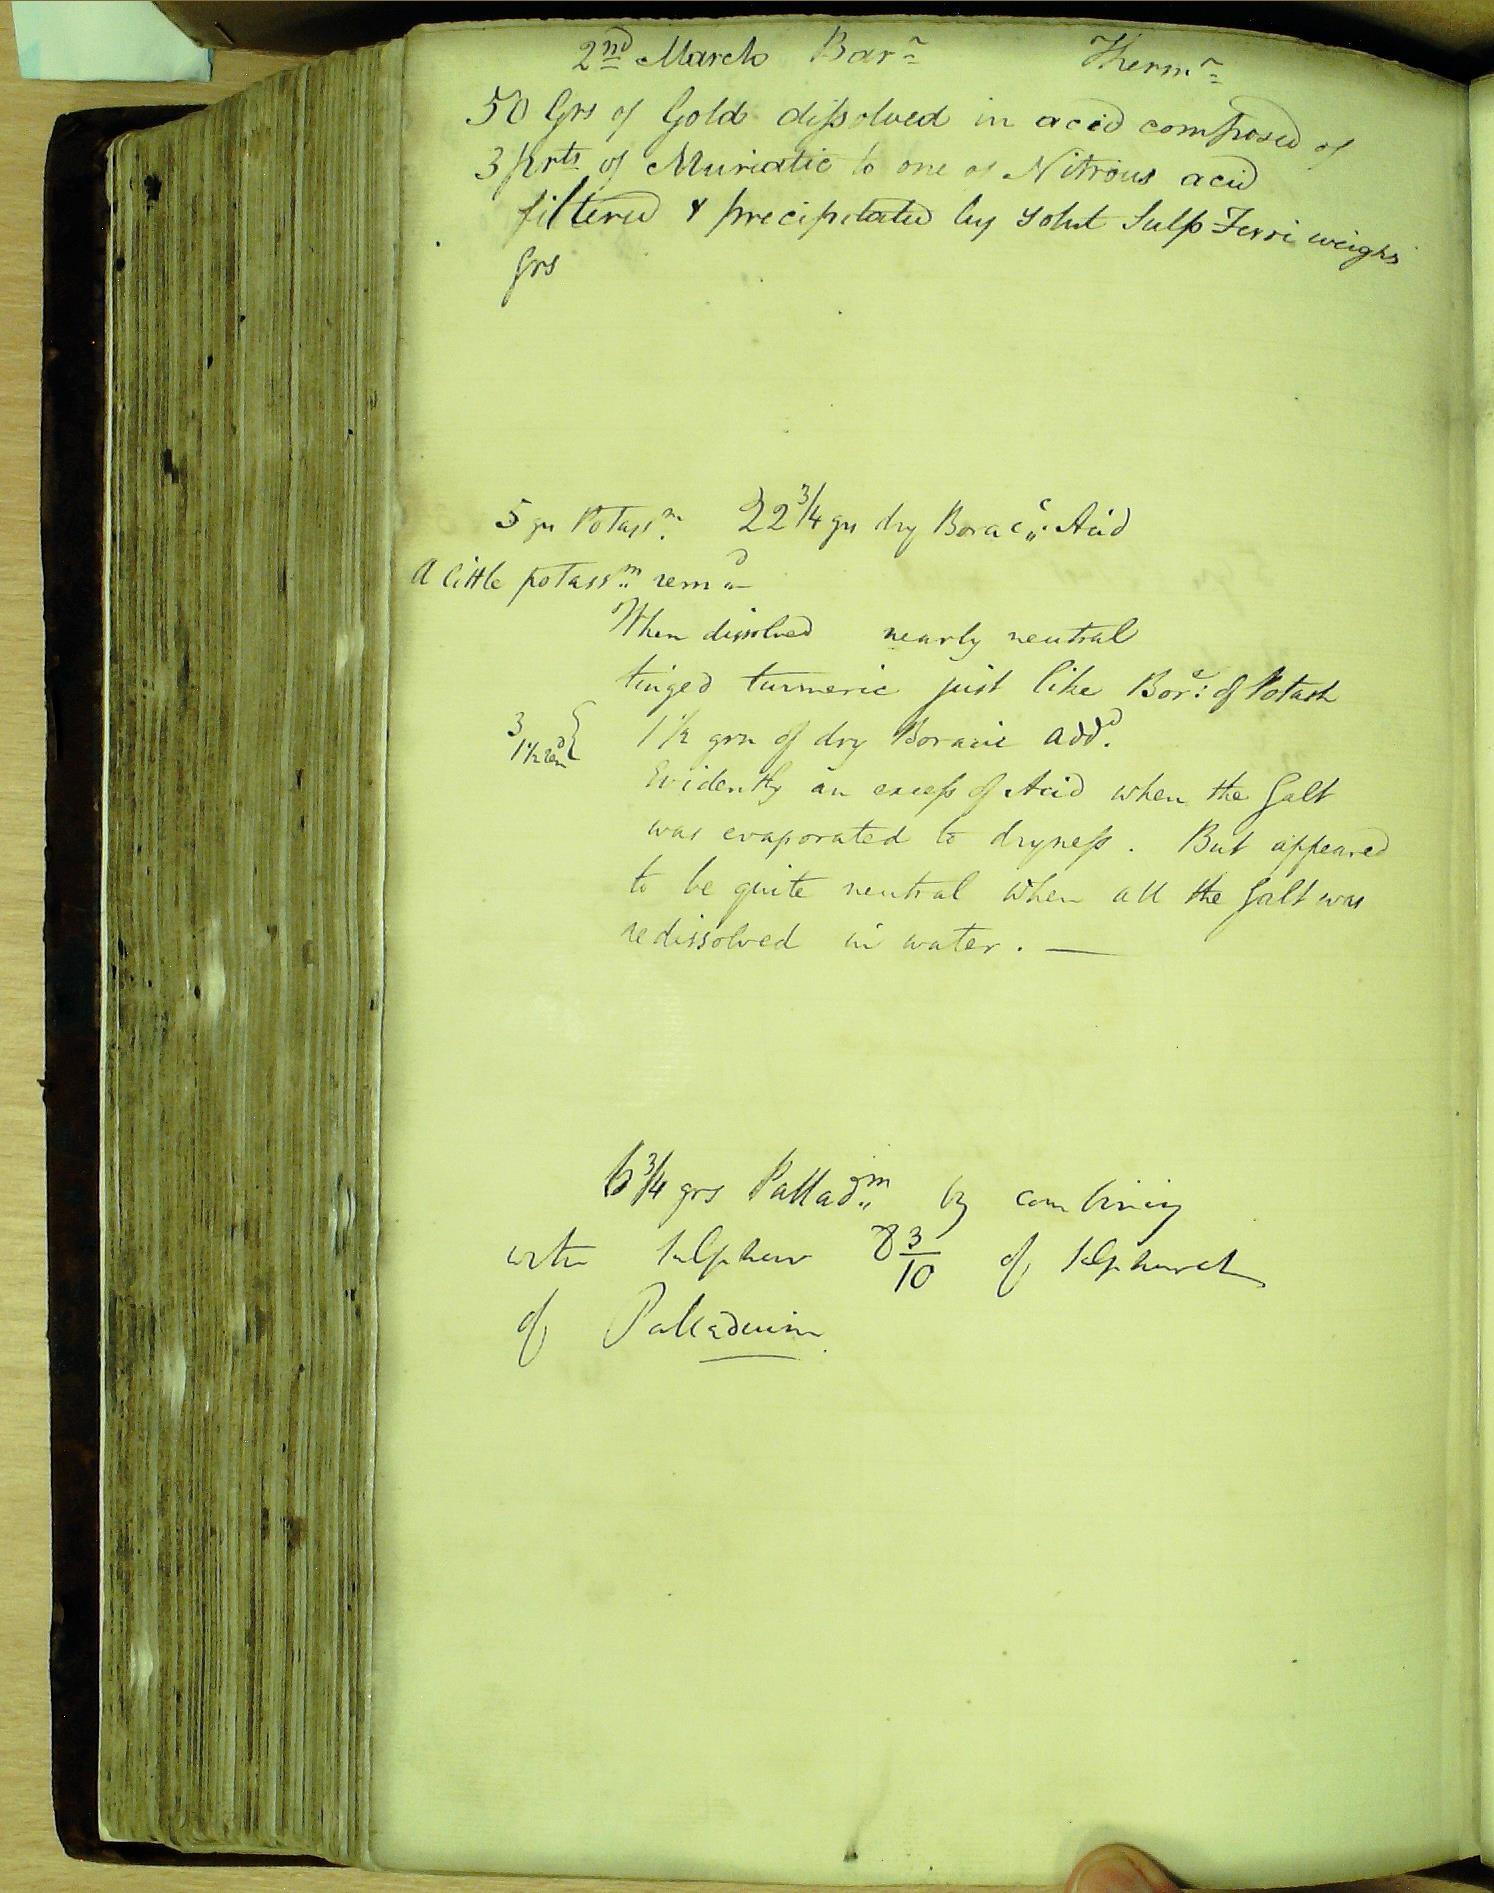 2nd March Barr Thermr
50 Grs of Gold dissolved in acid composed of
3 prts of Muriatic to one of Nitrous acid
filtered & precipitated by Solut Sulp Ferri weighs
Grs
5 grs Potassm. 22 3/4 grs dry Borac,,c Acid
A little potassm remd
When dissolved nearly neutral
tinged turmeric just like Bore: of Potash
3
1 1/2 remd { 1 1/2 grn of dry Boracic addd.
Evidently an excess of Acid when the Salt
was evaporated to dryness. But appeared
to be quite neutral when all the Salt was
redissolved in water. —
6 3/4 grs Palladm by combining
with Sulphur 8 3/10 of Sulphuret
of Palladium.